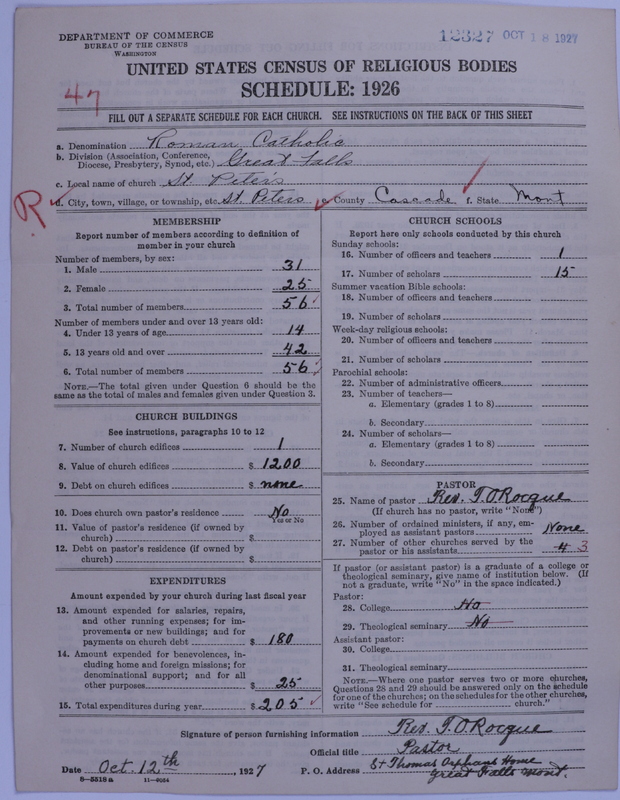 DEPARTMENT OF COMMERCE
BUREAU OF THE CENSUS
WASHINGTON
12327 OCT 18 1927
UNITED STATES CENSUS OF RELIGIOUS BODIES
SCHEDULE: 1926
47
FILL OUT A SEPARATE SCHEDULE FOR EACH CHURCH. SEE INSTRUCTIONS ON THE BACK OF THIS SHEET
a. Denomination Roman Catholic
b. Division (Association, Conference, Diocese, Presbytery, Synod, etc.) Great Falls
c. Local name of church St. Peter's
R
d. City, town, village, or township, etc. St. Peters e. County Cascade f. State Mont
MEMBERSHIP
Report number of members according to definition of
member in your church
Number of members, by sex:
1. Male 31
2. Female 25
3. Total number of members 56
Number of members under and over 13 years old:
4. Under 13 years of age 14
5. 13 years old and over 42
6. Total number of members 56
NOTE.—The total given under Question 6 should be
same as the total of males and females given under Question 3.
CHURCH BUILDINGS
See instructions, paragraphs 10 to 12
7. Number of church edifices 1
8. Value of church edifices $ 1200
9. Debt on church edifices $ none
10. Does church own pastor's residence No
Yes or No
11. Value of pastor's residence (if owned by
church) $
12. Debt on pastor's residence (if owned by
church) $
EXPENDITURES
Amount expended by your church during last fiscal year
13. Amount expended for salaries, repairs,
and other running expenses; for im-
provements or new buildings; and for
payments on church debt $ 180
14. Amount expended for benevolences, in-
cluding home and foreign missions; for
denominational support; and for all
other purposes $ 25
15. Total expenditures during year $ 205
CHURCH SCHOOLS
Report here only schools conducted by this church
Sunday schools:
16. Number of officers and teachers 1
17. Number of scholars 15
Summer vacation Bible schools:
18. Number of officers and teachers
19. Number of scholars
Week-day religious schools:
20. Number of officers and teachers
21. Number of scholars
Parochial schools:
22. Number of administrative officers
23. Number of teachers—
a. Elementary (grades 1 to 8)
b. Secondary
24. Number of scholars—
a. Elementary (grades 1 to 8)
b. Secondary
PASTOR
25. Name of pastor Rev. T. O. Rocque
(If church has no pastor, write "None")
26. Number of ordained ministers, if any, em-
ployed as assistant pastors None
27. Number of other churches served by the
pastor or his assistants 4 3
If pastor (or assistant pastor) is a graduate of a college or
theological seminary, give name of institution below. (If
not a graduate, write "No" in the space indicated.)
Pastor:
28. College No
29. Theological seminary No
Assistant pastor:
30. College
31. Theological seminary
NOTE.—Where one pastor serves two or more churches,
Questions 28 and 29 should be answered only on the schedule
for one of the churches; on the schedules for the other churches,
write "See schedule for church."
Signature of person furnishing information Rev. T. O. Rocque
Official title Pastor
Date Oct. 12th, 1927 P. O. Address St Thomas Orphans Home
Great Falls Mont.
8—5518a 11—9034